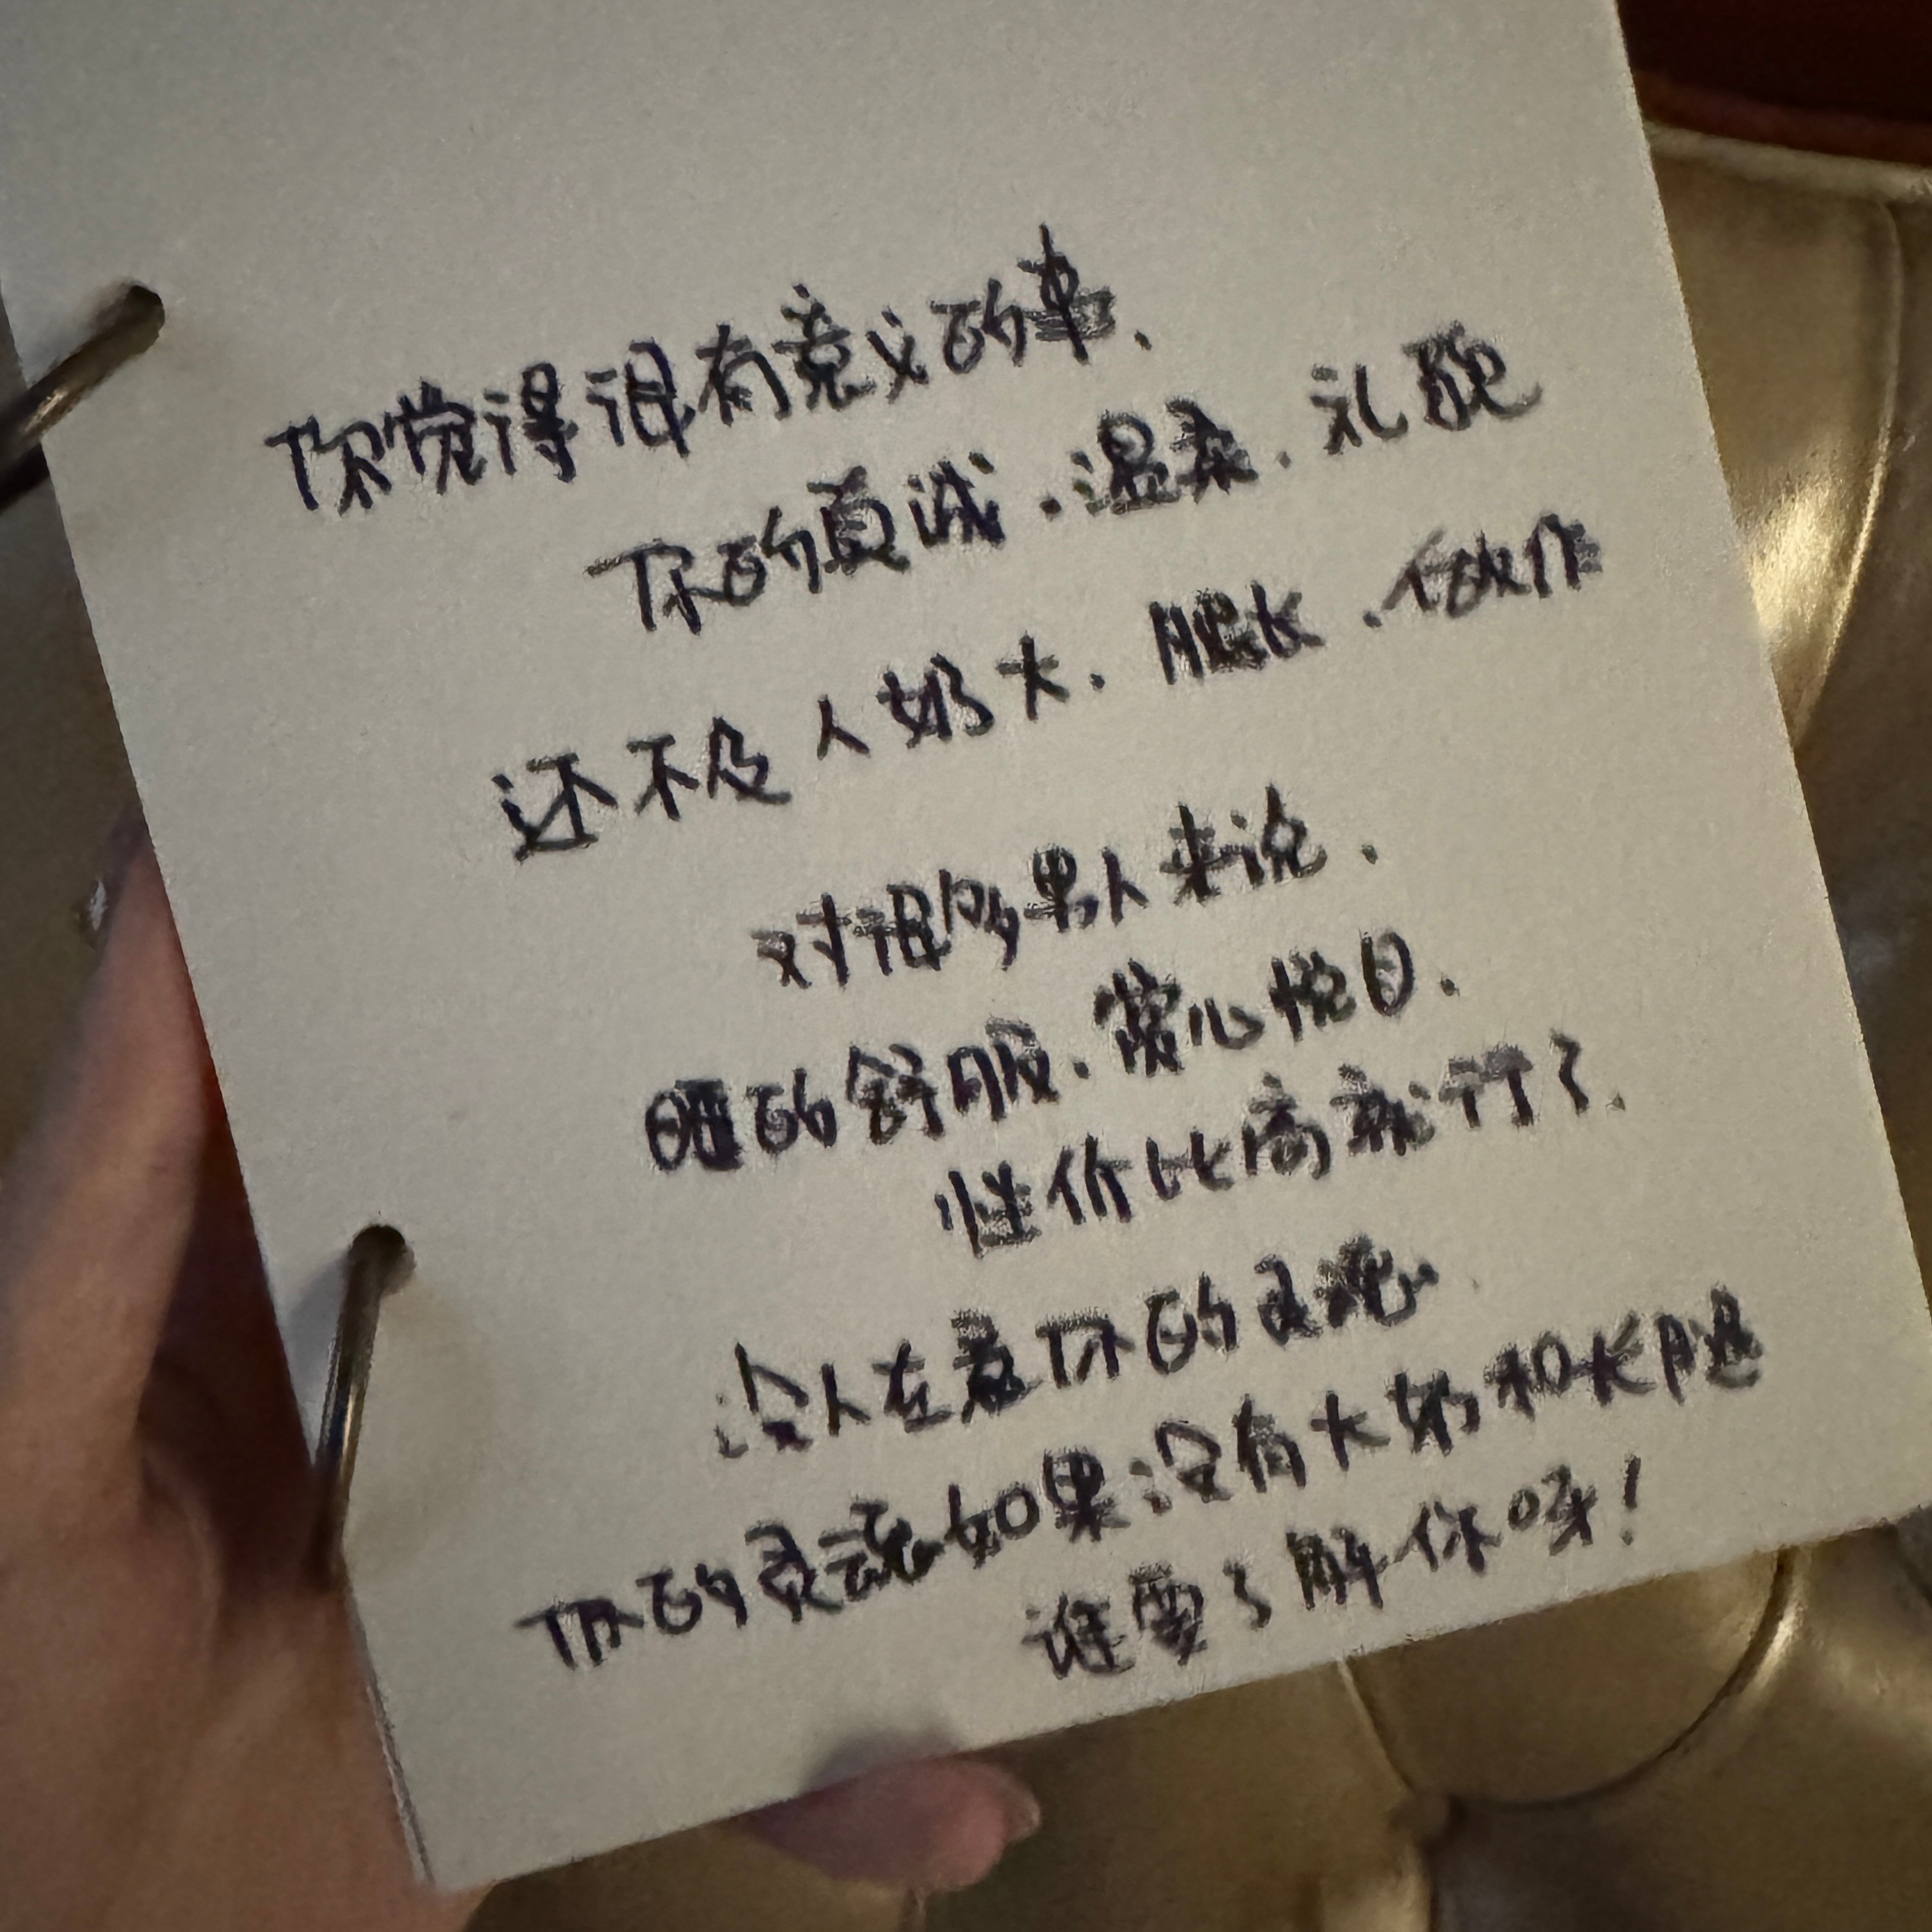 你觉得很有意义的事、
你的真诚.温柔.礼貌
还不及人奶大.腿长.会做作
对很多男人来说.
睡的舒服.赏心悦目.
性价比高就行了.
没人在意你的灵魂.
你的灵魂如果没有大奶和长腿
谁要了解你呀!